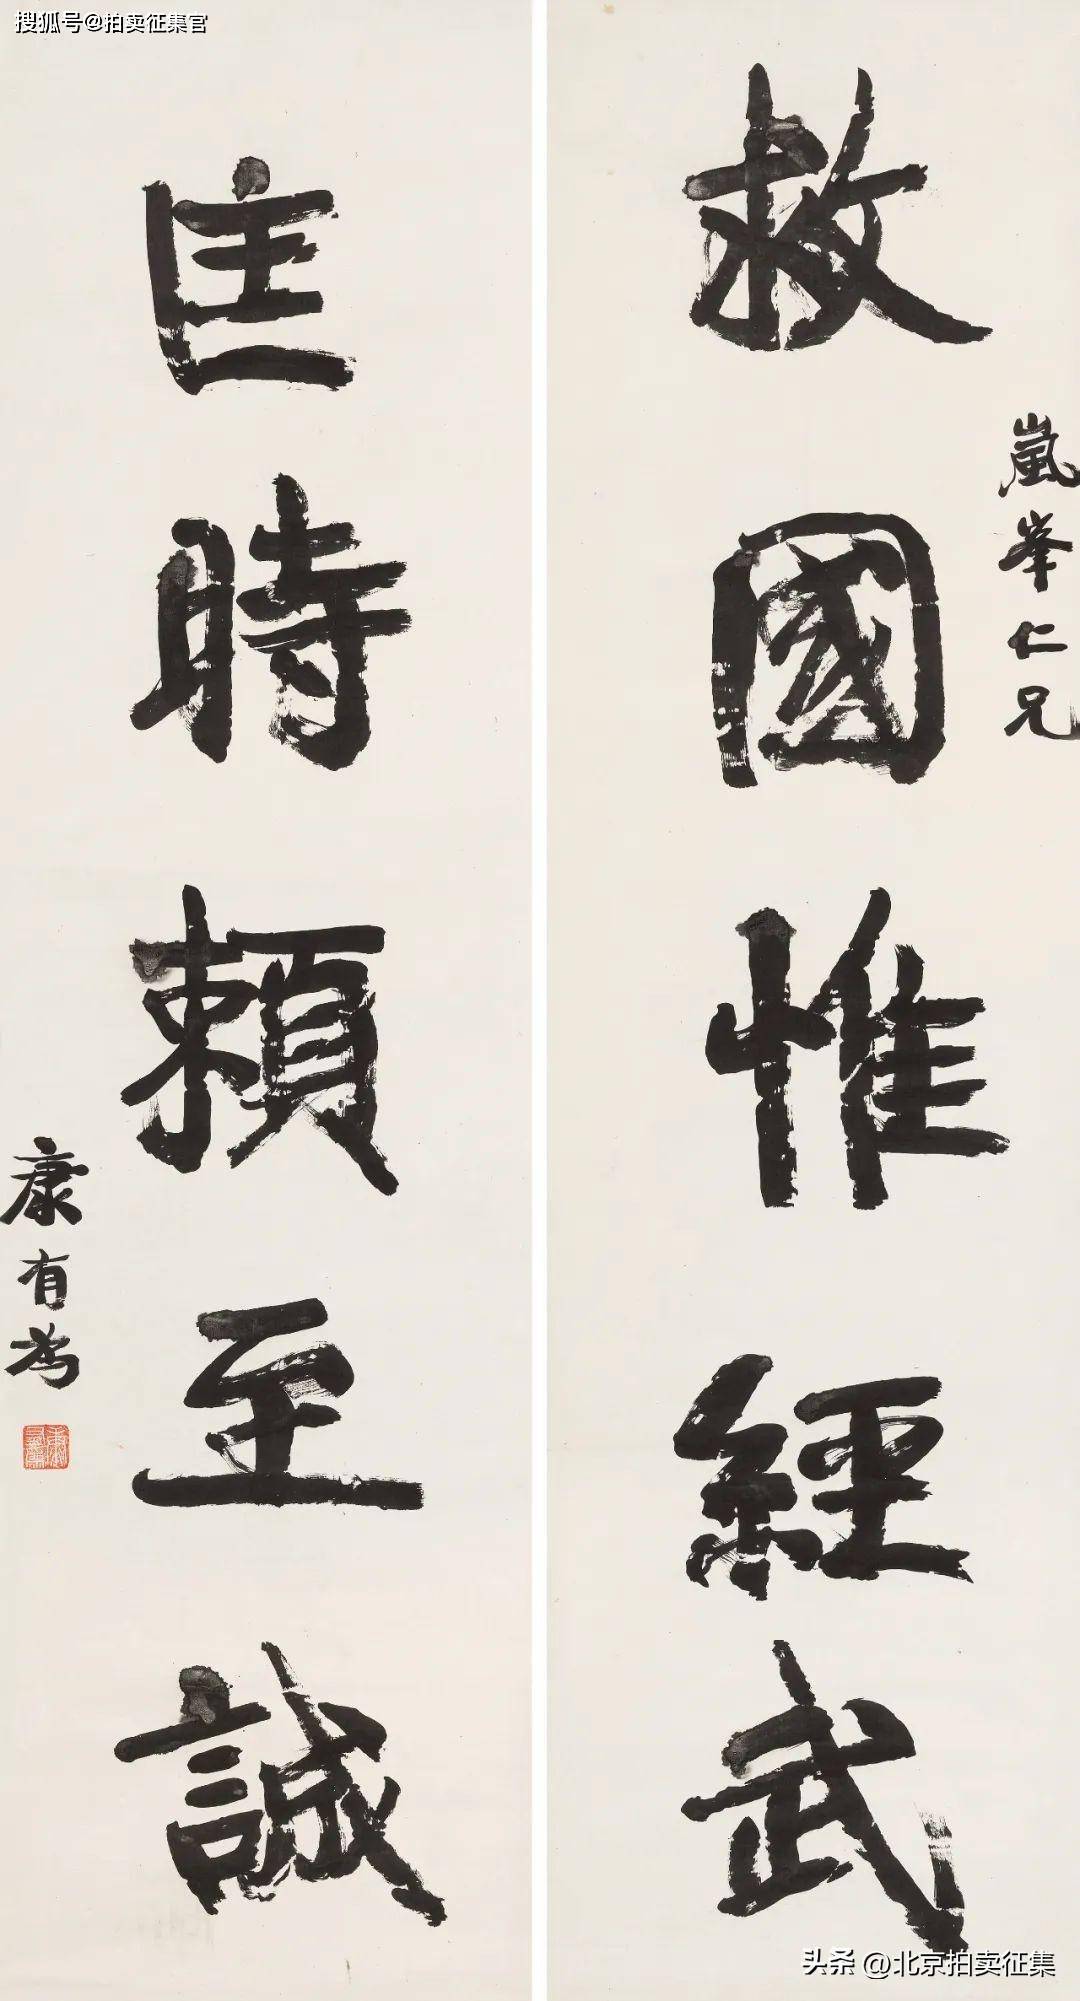 搜狐号@拍卖征集官
嵐峯仁兄
救國惟經武
匡時賴至誠
康有為
头条@北京拍卖征集